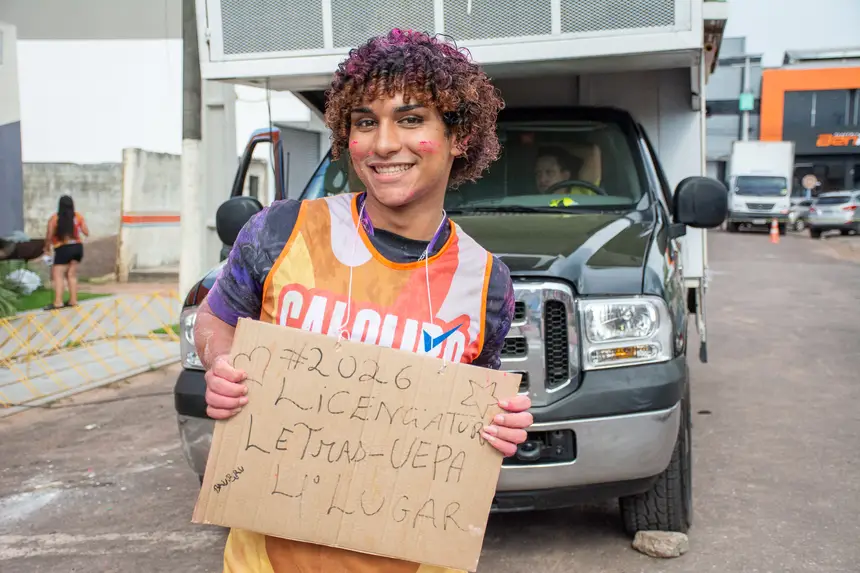 CALOURO
#2026
LiCENCiATURA
LETRAS-UEPA
4° LUGAR